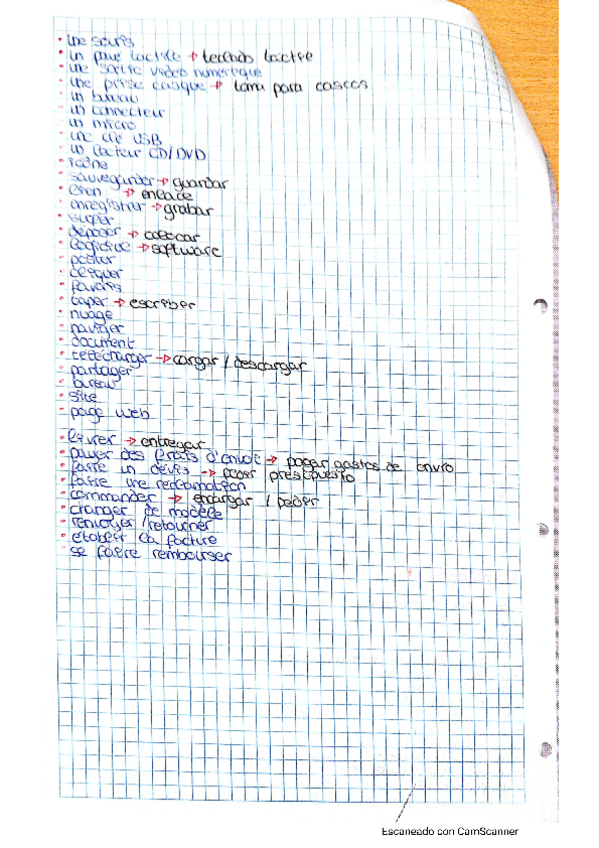 • une souris
• un pavé tactile → teclado tactil
• une sortie vidéo numérique
• une prise casque → toma para cascos
• un bureau
• un connecteur
• un micro
• une clé USB
• un lecteur CD/DVD
• icône
• sauvegarder → guardar
• lien → enlace
• enregistrer → grabar
• surfer
• déposer → colocar
• logiciel → software
• poster
• cliquer
• favoris
• taper → escribir
• nuage
• naviger
• document
• télécharger → cargar / descargar
• partager
• bureau
• site
• page web
• livrer → entregar
• payer des frais d'envoi → pagar gastos de envío
• faire un devis → pedir presupuesto
• faire une réclamation
• commander → encargar / pedir
• changer de modèle
• renvoyer / retourner
• établir la facture
• se faire rembourser
Escaneado con CamScanner